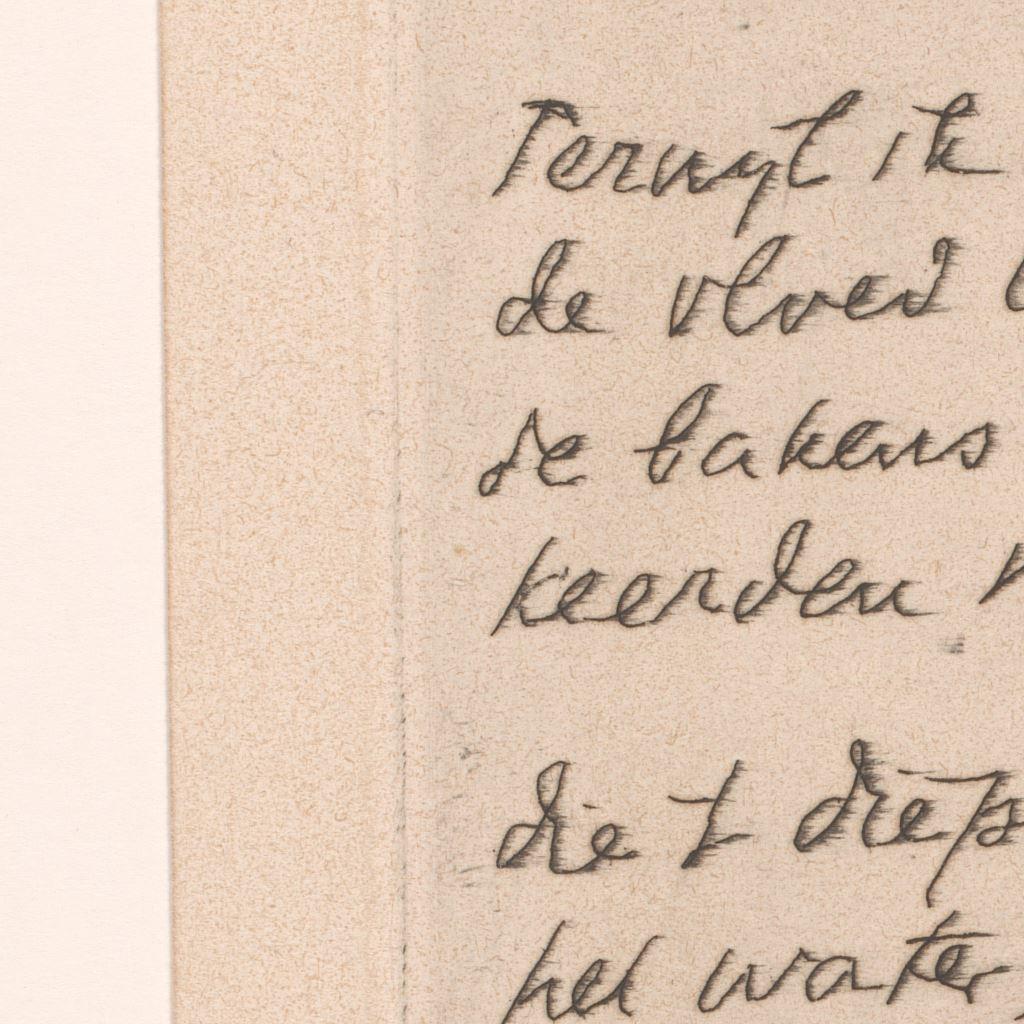 Terwyl ik
de vloed
de bakens
keerden
die 't diepst
het water